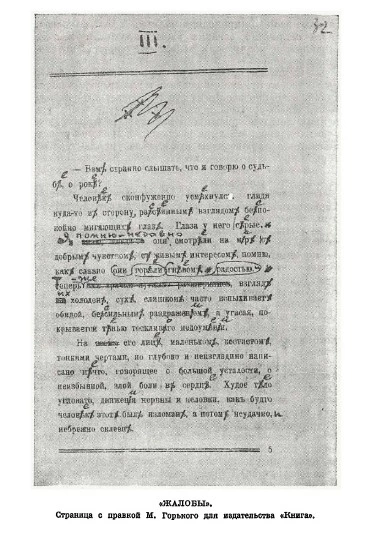 III.
32
— Вамъ странно слышать, что я говорю о судь-
бѣ, о рокѣ?
Человѣкъ сконфуженно усмѣхнулся, глядя
куда-то въ сторону, разсѣяннымъ взглядомъ безпо-
койно мигающихъ глазъ. Глаза у него сѣрые.
помню недавно
они смотрѣли на міръ съ
добрымъ чувствомъ, съ живымъ интересомъ, помню,
какъ славно они горѣли гнѣвомъ и радостью.
Теперь же взглядъ
ихъ холоденъ, сухъ, слишкомъ часто вспыхиваетъ
обидой, безсильнымъ раздраженіемъ, а угасая, по-
крывается тѣнью тоскливаго недоумѣнія.
На его лицѣ, маленькомъ, костистомъ,
тонкими чертами, но глубоко и неизгладимо напи-
сано нѣчто, говорящее о большой усталости, о
неизбывной, злой боли въ сердцѣ. Худое тѣло
угловато, движенія нервны и неловки, какъ будто
человѣкъ этотъ былъ изломанъ, а потомъ неудачно, и
небрежно склеенъ.
5
«ЖАЛОБЫ».
Страница с правкой М. Горького для издательства «Книга».